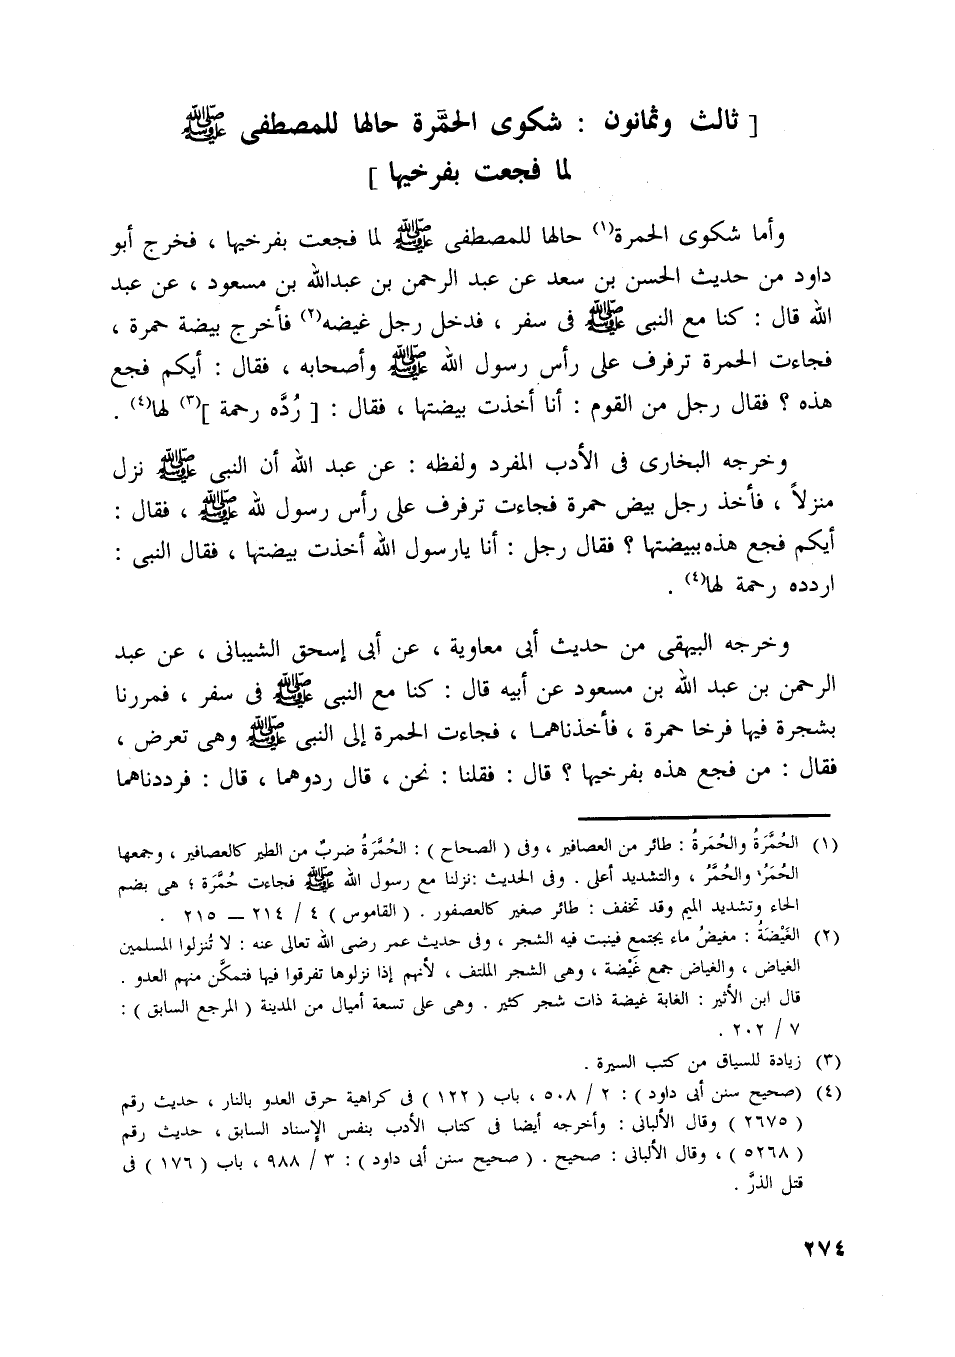 [ ثالث وثمانون : شكوى الحمَّرة حالها للمصطفى ﷺ
لما فجعت بفرخيها ]
وأما شكوى الحمرة(١) حالها للمصطفى ﷺ لما فجعت بفرخيها ، فخرج أبو
داود من حديث الحسن بن سعد عن عبد الرحمن بن عبدالله بن مسعود ، عن عبد
الله قال : كنا مع النبى ﷺ فى سفر ، فدخل رجل غيضه(٢) فأخرج بيضة حمرة ،
فجاءت الحمرة ترفرف على رأس رسول الله ﷺ وأصحابه ، فقال : أيكم فجع
هذه ؟ فقال رجل من القوم : أنا أخذت بيضتها ، فقال : [ رُدَّه رحمة ](٣) لها(٤) .
وخرجه البخارى فى الأدب المفرد ولفظه : عن عبد الله أن النبى ﷺ نزل
منزلاً ، فأخذ رجل بيض حمرة فجاءت ترفرف على رأس رسول لله ﷺ ، فقال :
أيكم فجع هذه ببيضتها ؟ فقال رجل : أنا يارسول الله أخذت بيضتها ، فقال النبى :
اردده رحمة لها(٤) .
وخرجه البيهقى من حديث أبى معاوية ، عن أبى إسحق الشيبانى ، عن عبد
الرحمن بن عبد الله بن مسعود عن أبيه قال : كنا مع النبى ﷺ فى سفر ، فمررنا
بشجرة فيها فرخا حمرة ، فأخذناهما ، فجاءت الحمرة إلى النبى ﷺ وهى تعرض ،
فقال : من فجع هذه بفرخيها ؟ قال : فقلنا : نحن ، قال ردوهما ، قال : فرددناهما
(١) الحُمَّرَةُ والحُمَرةُ : طائر من العصافير ، وفى ( الصحاح ) : الحُمَّرَةُ ضربٌ من الطير كالعصافير ، وجمعها
الحُمَرُ والحُمَّرُ ، والتشديد أعلى . وفى الحديث :نزلنا مع رسول الله ﷺ فجاءت حُمَّرَة ؛ هى بضم
الحاء وتشديد الميم وقد تخفف : طائر صغير كالعصفور . ( القاموس ) ٤ / ٢١٤ ــ ٢١٥ .
(٢) الغَيْضَةُ : مغيضُ ماء يجتمع فينبت فيه الشجر ، وفى حديث عمر رضى الله تعالى عنه : لا تُنزلوا المسلمين
الغياض ، والغياض جمع غَيْضة ، وهى الشجر الملتف ، لأنهم إذا نزلوها تفرقوا فيها فتمكَّن منهم العدو .
قال ابن الأثير : الغابة غيضة ذات شجر كثير . وهى على تسعة أميال من المدينة ( المرجع السابق ) :
٧ / ٢٠٢ .
(٣) زيادة للسياق من كتب السيرة .
(٤) (صحيح سنن أبى داود ) : ٢ / ٥٠٨ ، باب ( ١٢٢ ) فى كراهية حرق العدو بالنار ، حديث رقم
( ٢٦٧٥ ) وقال الألبانى : وأخرجه أيضا فى كتاب الأدب بنفس الإسناد السابق ، حديث رقم
( ٥٢٦٨ ) ، وقال الألبانى : صحيح . ( صحيح سنن أبى داود ) : ٣ / ٩٨٨ ، باب ( ١٧٦ ) فى
قتل الذرَّ .
٢٧٤